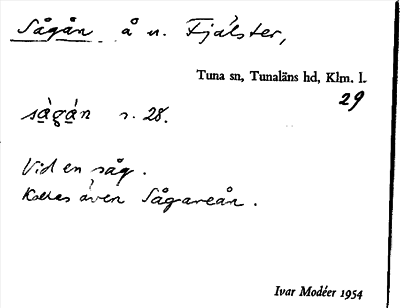 Sågån å n. Fjälster,
Tuna sn, Tunaläns hd, Klm. l.
29
sågån s. 28.
Vid en såg.
Kallas även Sågareån.
Ivar Modéer 1954